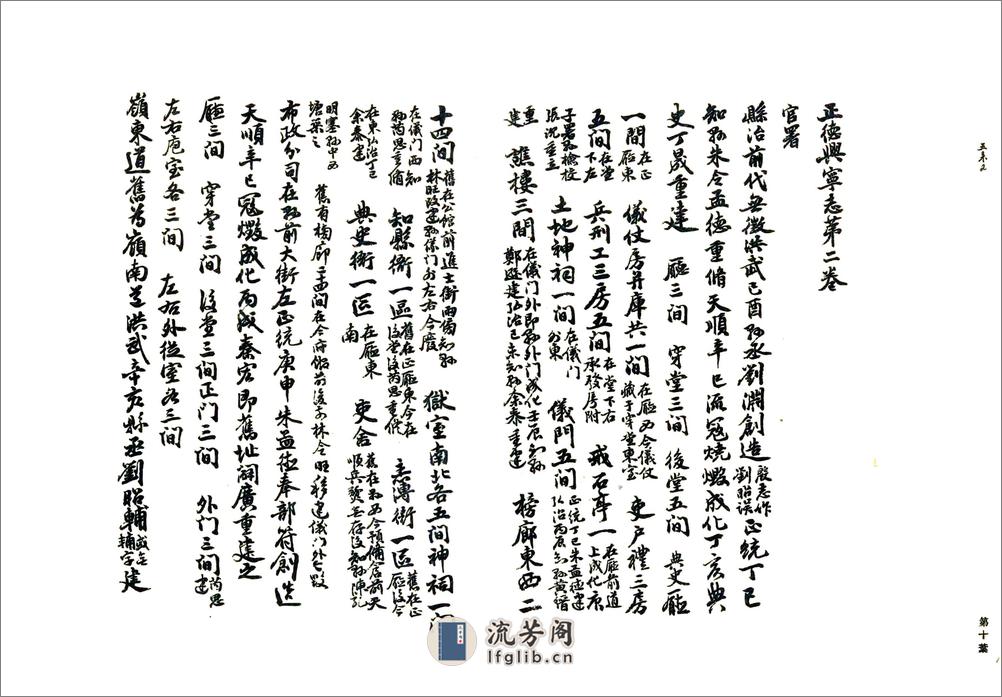 五末2
正德興寧志第二卷
官署
縣治前代無徵洪武己酉縣丞劉淵創造殷志作劉昭誤正統丁巳
知縣朱令孟德重脩天順辛巳流寇燒燬成化丁亥典
史丁晟重建 廳三間 穿堂三間 後堂五間 典史廳
一間在正廳東 儀仗房并庫共一間在廳西今儀仗藏于穿堂東室 吏户禮三房
五間在堂下左 兵刑工三房五間在堂下右承發房附 戒石亭一在廳前道上成化庚
子署縣檢校張沈重立 土地神祠一間在儀門外東 儀門五間正統丁巳朱孟德建弘治丙辰知縣
重建 譙樓三間在儀門外即縣外門成化壬辰知縣鄭 建弘治己未知縣余泰重建 榜廊東西二
十四間舊在公館前進士街兩偏知縣林旺改建縣儀門外左右今廢 獄室南北各五間神祠一間
在儀門西知縣芮思重脩 知縣衙一區舊在正廳東今在後堂後芮思重脩 主簿衙一區舊在正廳後今
在東弘治丁巳余泰建 典史衙一區在廳東南 吏舍舊在縣西今預備倉前天順兵燹 存後知縣陳
明 縣中西塘築之 舊有 廊 間在今府館前後知林令旺移建儀門外已毀
布政分司在縣前大街左正統庚申朱孟德奉部符創造
天順辛巳寇燬成化丙戌秦宏即舊址闢廣重建之
廳三間 穿堂三間 後堂三間正门三間 外门三間芮思建
左右庖室各三間 左右外從室各三間
嶺東道舊爲嶺南道洪武辛亥縣丞劉昭輔 輔字建
第十葉
流芳阁
lfglib.cn